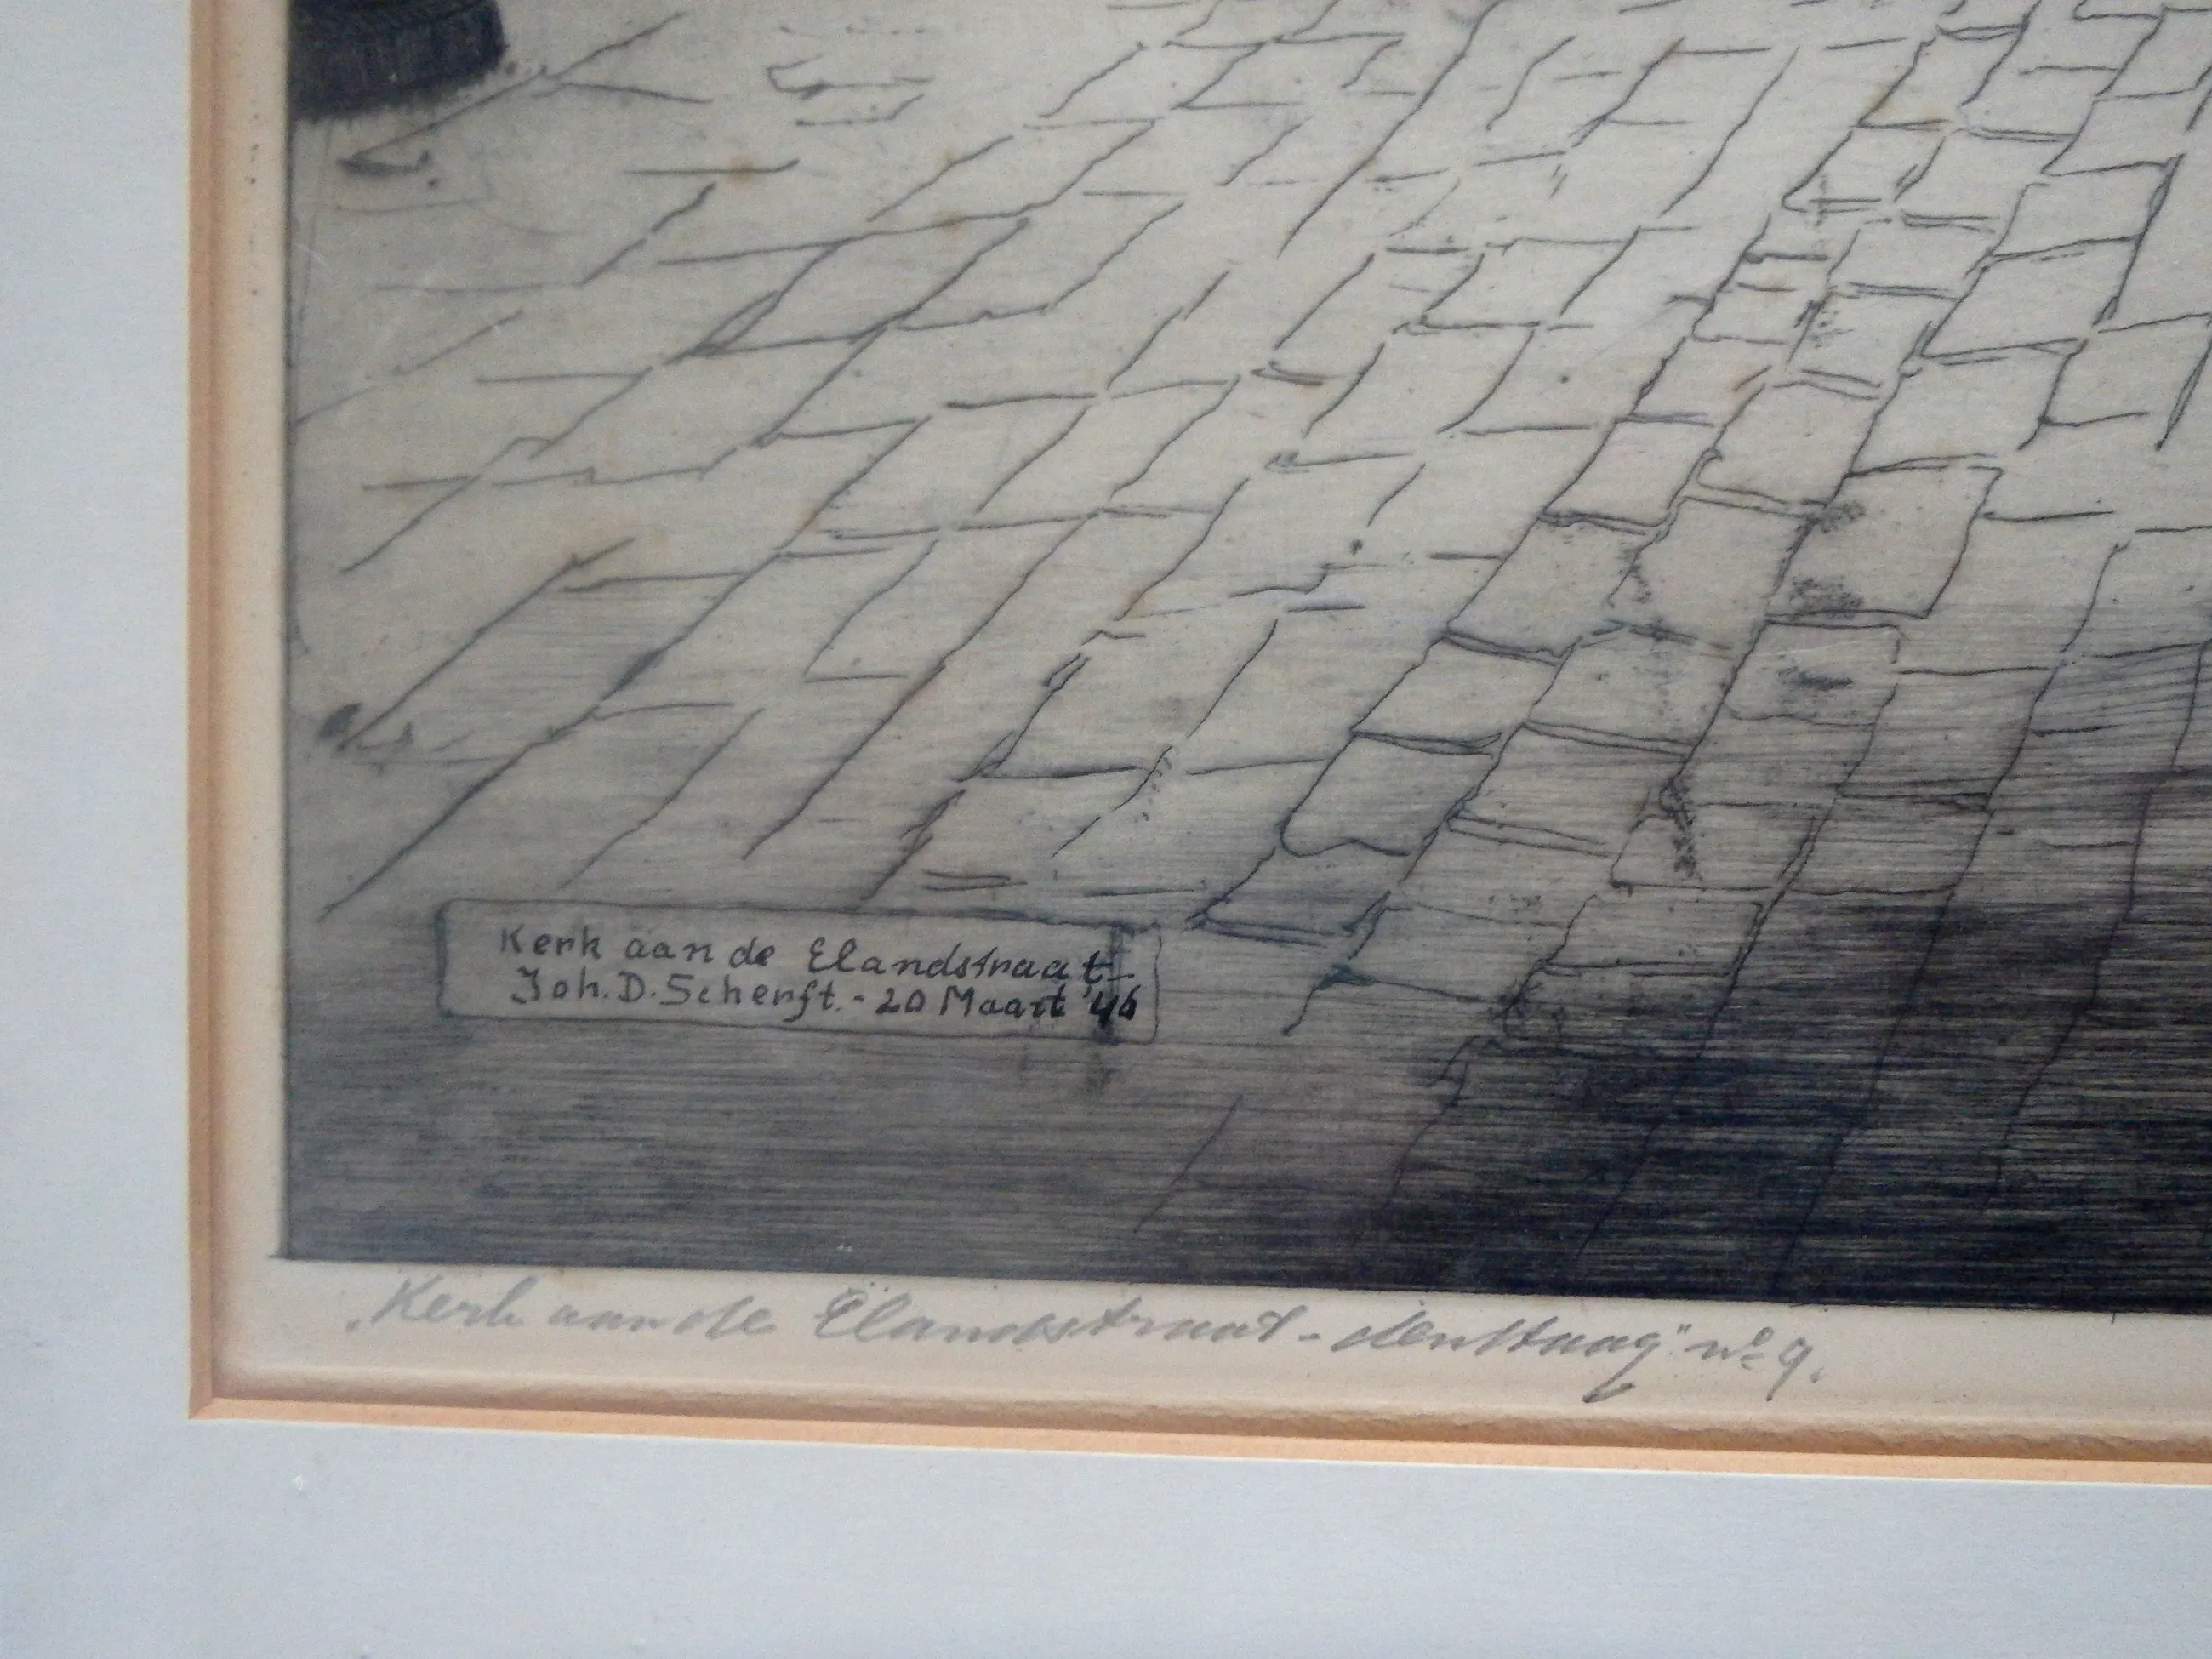 Kerk aan de Elandstraat
Joh. D. Scherft. - 20 Maart '46
„Kerk aan de Elandstraat - den Haag" nº 9.